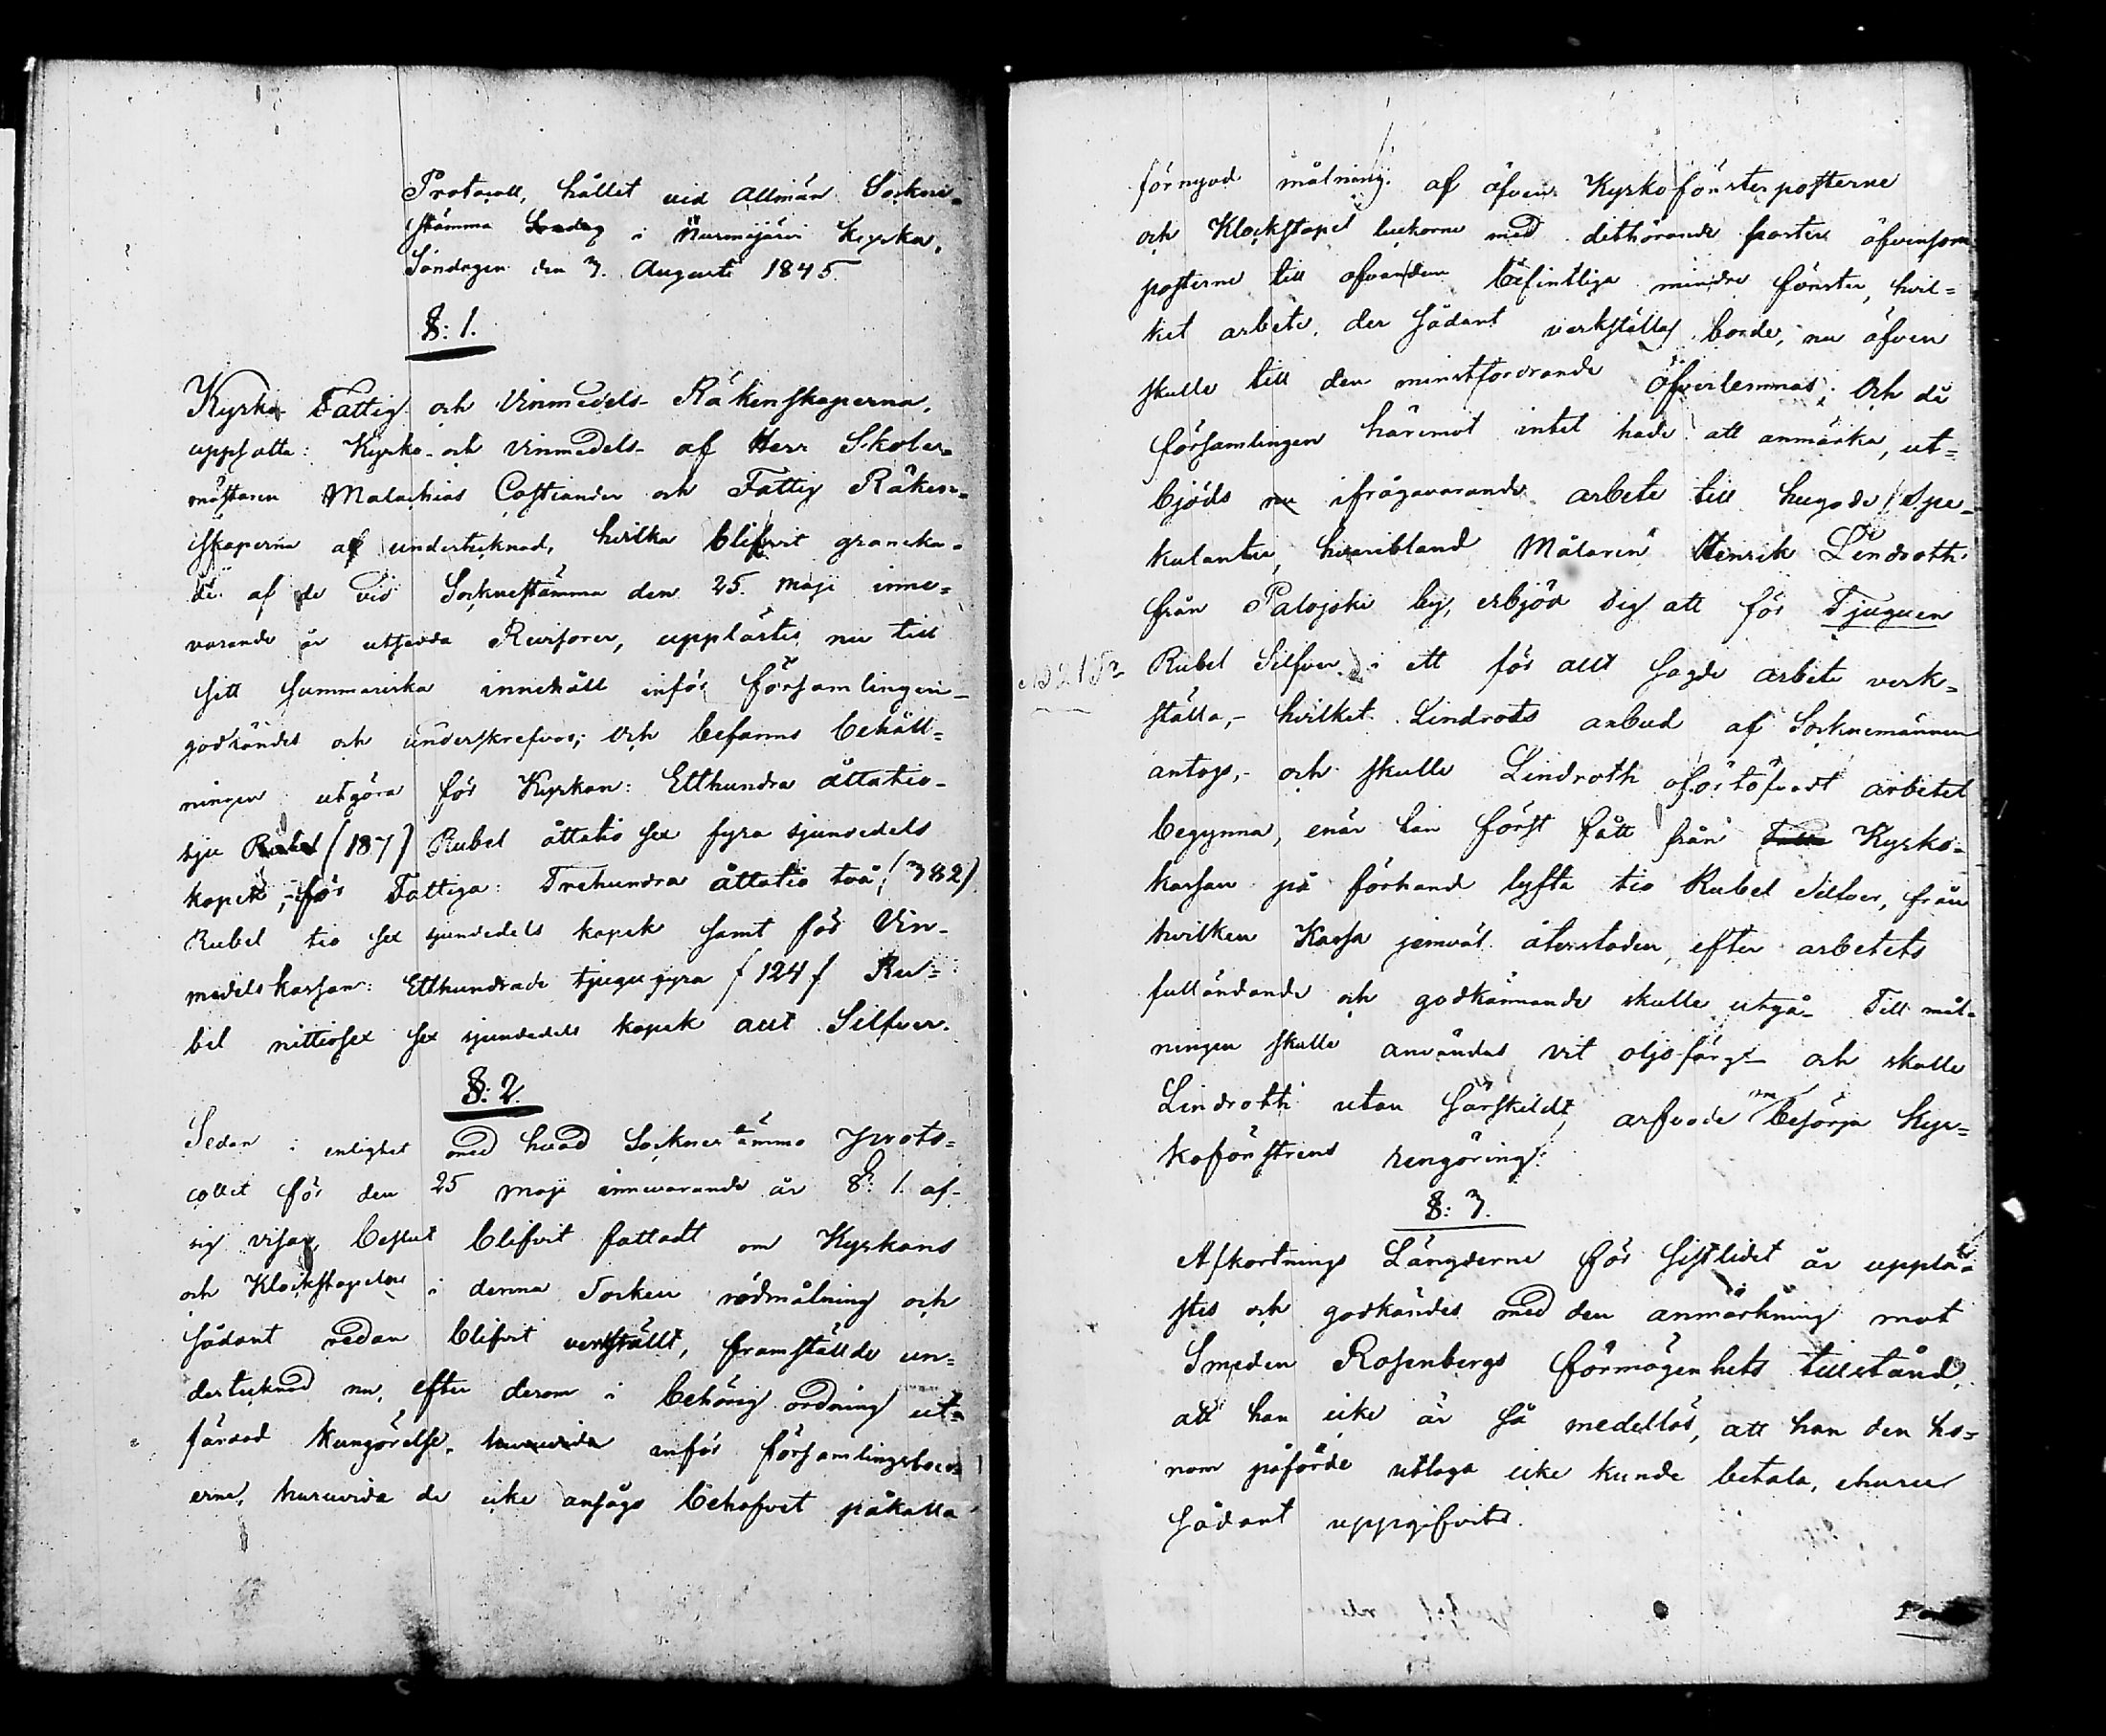 Protocoll, hållet vid Allmän Sockne-
stämma Sondag i Nurmijärvi Kyrka,
Söndagen den 3. Augusti 1845.
§: 1.
Kyrko- Fattig- och Vinmedels- Räkenskaperna,
uppsatta: Kyrko- och Vinmedels- af Herr Skolæ-
mästaren Malachias Costiander och Fattig Räken-
skaperna af undertecknad, hvilka blifvit granska-
de af de vid Socknestämma den 25. Maji inne-
varande år utsedda Revisorer, upplästes nu till
sitt summariska innehåll inför församlingen-
godkändes och underskrefvos; och befanns behåll-
ningen utgöra för Kyrkan: Etthundra åttatio-
sju Rubel (187) Rubel åttatio sex fyra sjundedels
kopek,- för Fattiga: Trehundra åttatio två (382)
Rubel tio sex sjundedels kopek samt för Vin-
medelskassan: Etthundrade tjugufyra (124) Ru-
bel nittiosex sex sjundedels kopek allt Silfver.
§: 2.
Sedan i enlighet med hvad Sockenstämmo Proto-
collet för den 25 Maji innevarande år §: 1. af-
sig visar, beslut blifvit fattadt om Kyrkans
och Klockstapelns i denna Socken rödmålning och
sådant redan blifvit verkställt, framställde un-
dertecknad nu, efter derom i behörig ordning ut-
färdad kungörelse, huruvida inför församlingsboer-
erne, huruvida de icke ansågo behofvet påkalla
förnyad målning af äfven Kyrkofönsterposterne
och Klockstapel luckorne med dithörande poster äfvensom
posterne till ofvan dem befintliga mindre fönster, hvil-
ket arbete, der sådant verkställas borde, nu äfven
skulle till den minstfordrande öfverlemnas; Och då
församlingen häremot intet hade att anmärka, ut-
bjöds nu ifrågavarande arbete till hugade Spe-
kulanter, hvaribland Målaren Henrik Lindroth
från Palojoki by, erbjöd sig att för Tjuguen
Rubel Silfver i ett för allt sagde arbete verk-
21 Sr
ställa,- hvilket Lindroths anbud af Socknemännen
antogs,- och skulle Lindroth oförtöfvadt arbetet
begynna, enär han först fått från Kyrko-
kassan på förhand lyfta tio Rubel Silfver, från
hvilken Kassa jemväl återstoden, efter arbetets
fulländande och godkännande skulle utgå. Till mål-
ningen skulle användas vit oljofärg- och skulle
Lindroth utan särskildt arfvode besörja Kyr-
kofönstrens rengöring.
§: 3.
Afkortnings Längderne för sistlidet år upplä-
stes och godkändes med den anmärkning mot
Smeden Rosenbergs förmögenhets tillstånd,
att han icke är så medellös, att han den ho-
nom påförde utlaga icke kunde betala, ehuru
sådant uppgifvits.